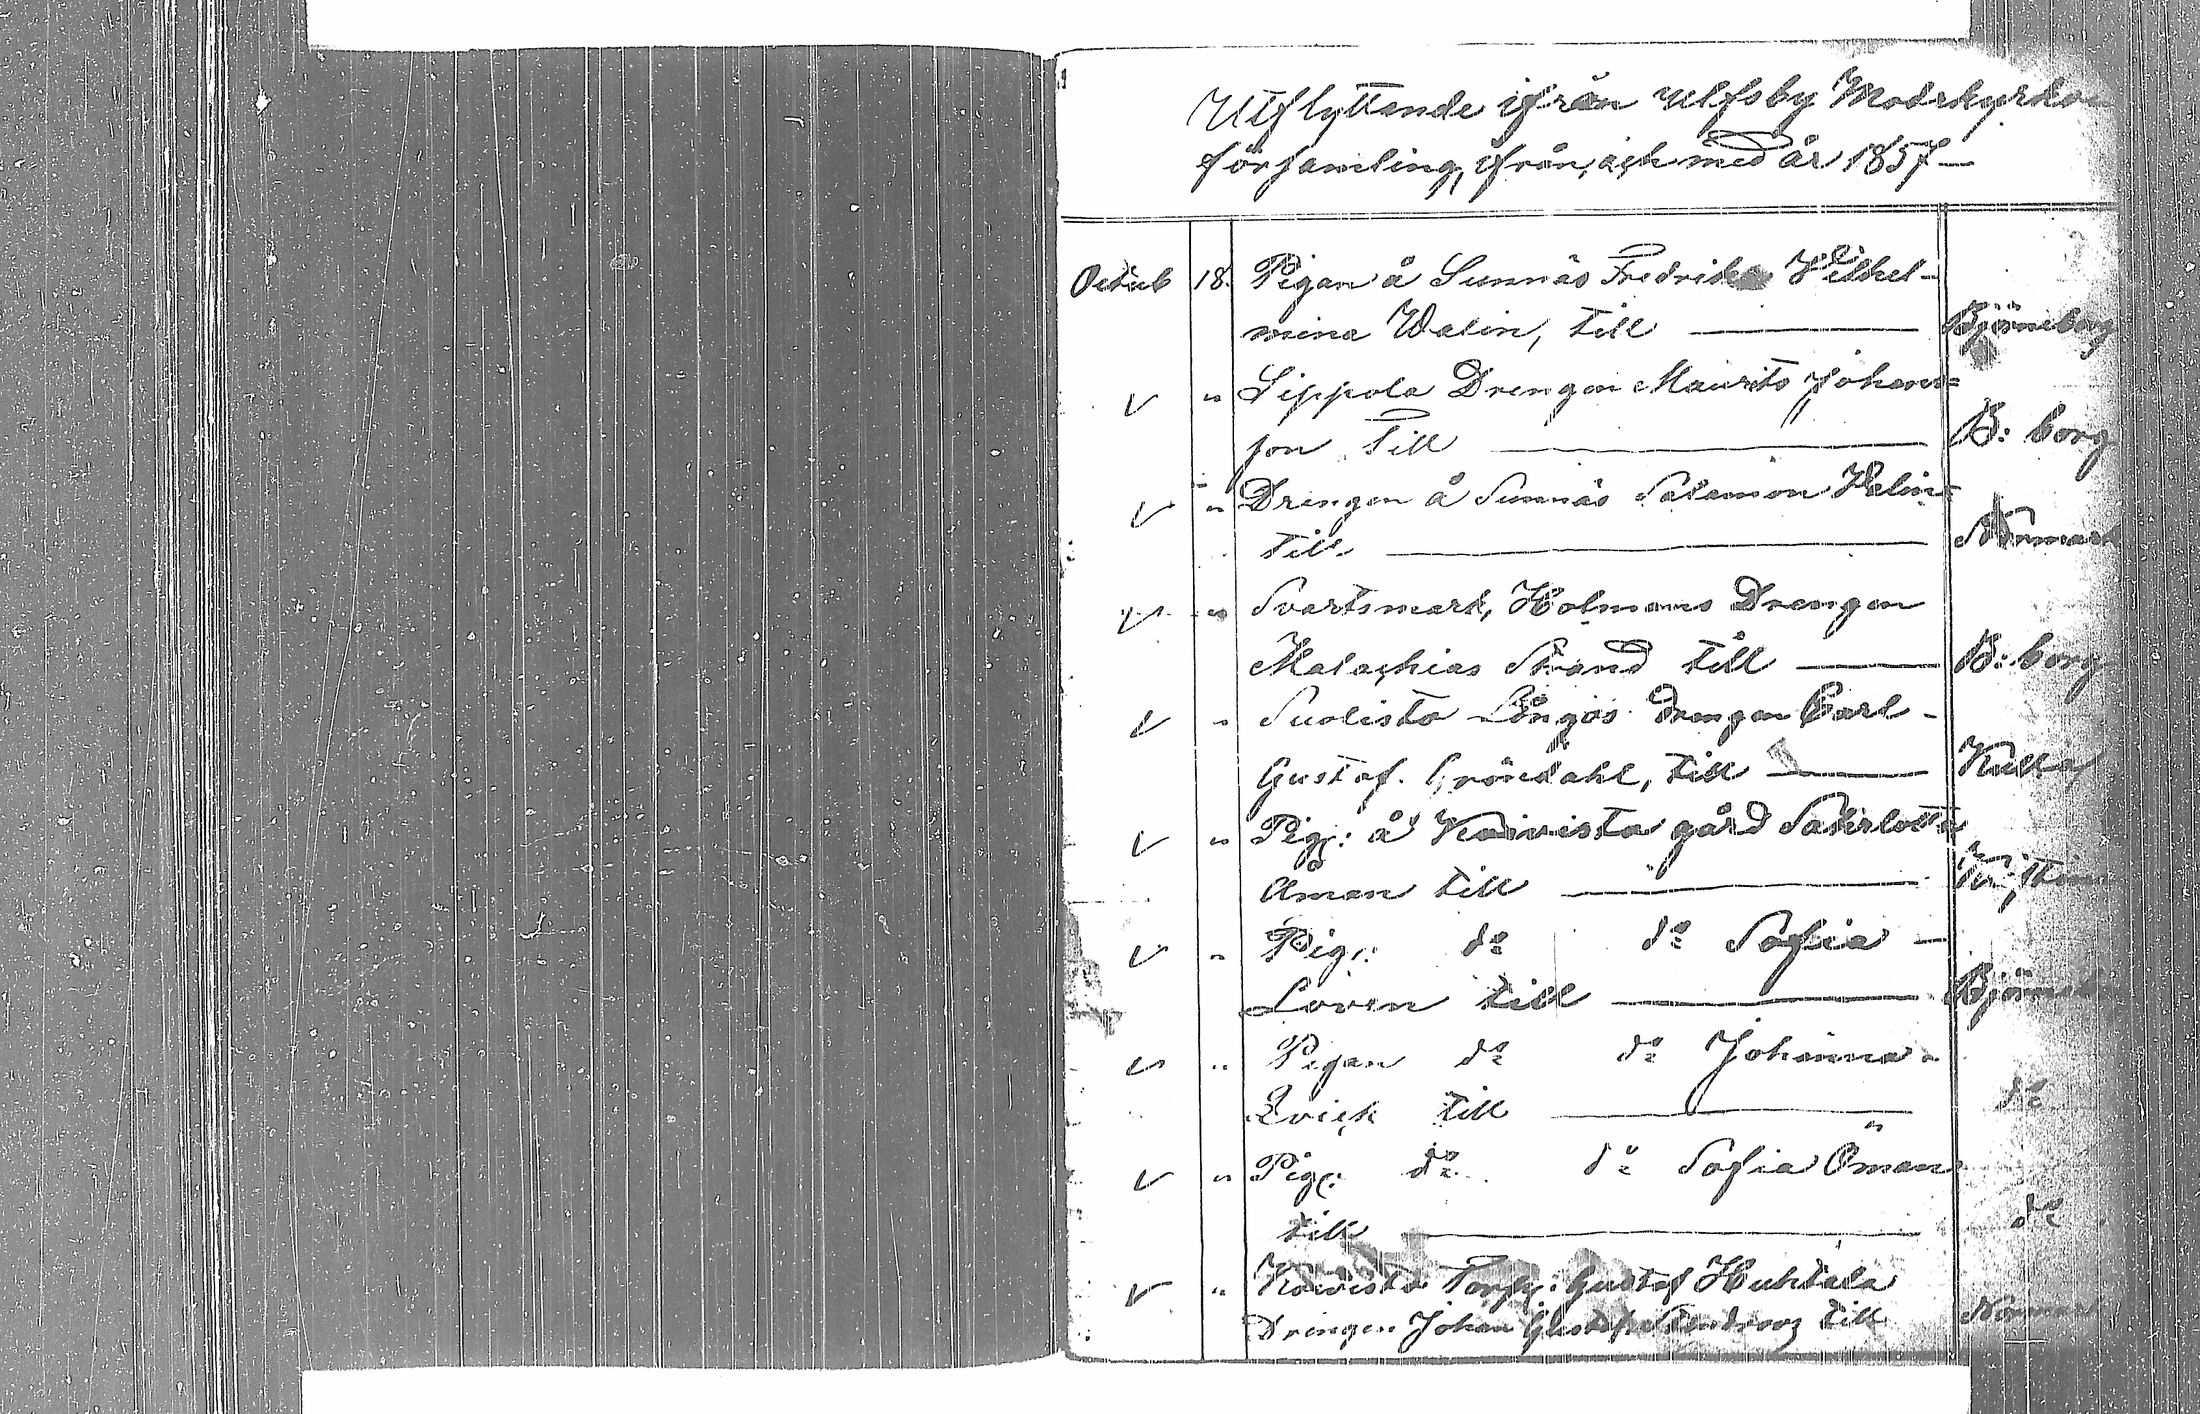 Utflyttande ifrån Ulfsby Moderkyrko
församling, ifrån, och med år 1857 —
Octub 18. Pigan å Sunnäs Fredrika Vilhel-
mina Walin, till — Björneborg
" Sippola Drengen Maurits Johans=
son till — B: borg
" Drengen å Sunnäs Salomon Walin
till — Norrmark
" Svartsmark, Holmens Drengen
Malachias Strand till — B: borg
" Suolisto Långös Drengen Carl-
Gustaf Gröndahl, till — Kulla
" Pig: å Koivisto gård Sakrlotta
Åman till —
" Pig: do do Sofia —
Loven till — Björneb
" Pigan do do Johanna -
Qvick till — do
" Pig: do do Sofia Öman
till — do
" Koivisto Torp: Gustaf Huhtala
Drengen Johan Gustaf till Norrmar